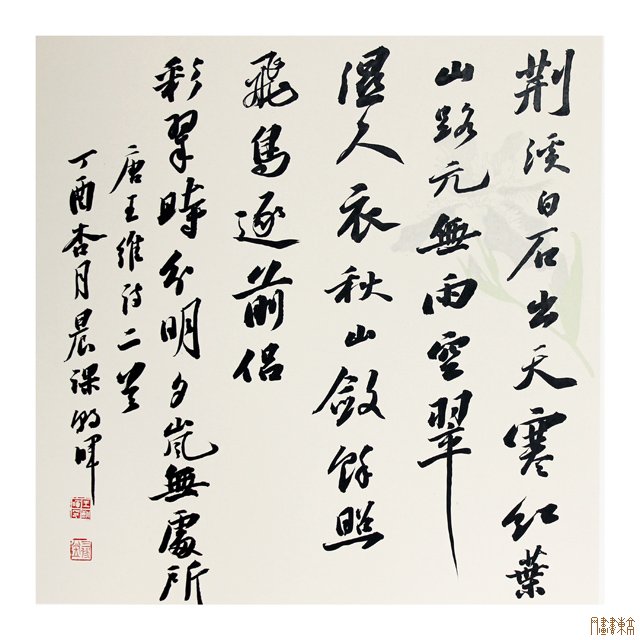 荆溪白石出天寒红葉
山路元無雨空翠
湿人衣秋山斂餘照
飛鳥逐前侣
彩翠時分明夕嵐無處所
唐王維诗二首
丁酉杏月晨課